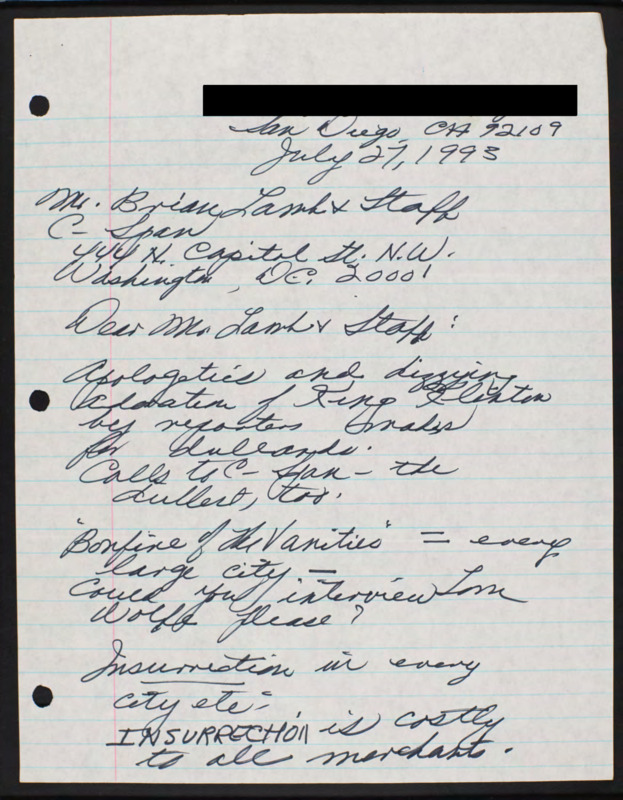 San Diego, CA 92109
July 27, 1993
Mr. Brian Lamb & Staff
C-Span
444 N. Capitol St. N.W.
Washington, DC. 20001
Dear Mr. Lamb & Staff:
Apologetics and
adoration of King Klinton
by reporters makes
for dullards.
Calls to C-Span - the
dullest, too.
"Bonfire of the Vanities" = every
large city -
Could you interview Tom
Wolfe please?
Insurrection in every
city etc.
INSURRECTION is costly
to all merchants.